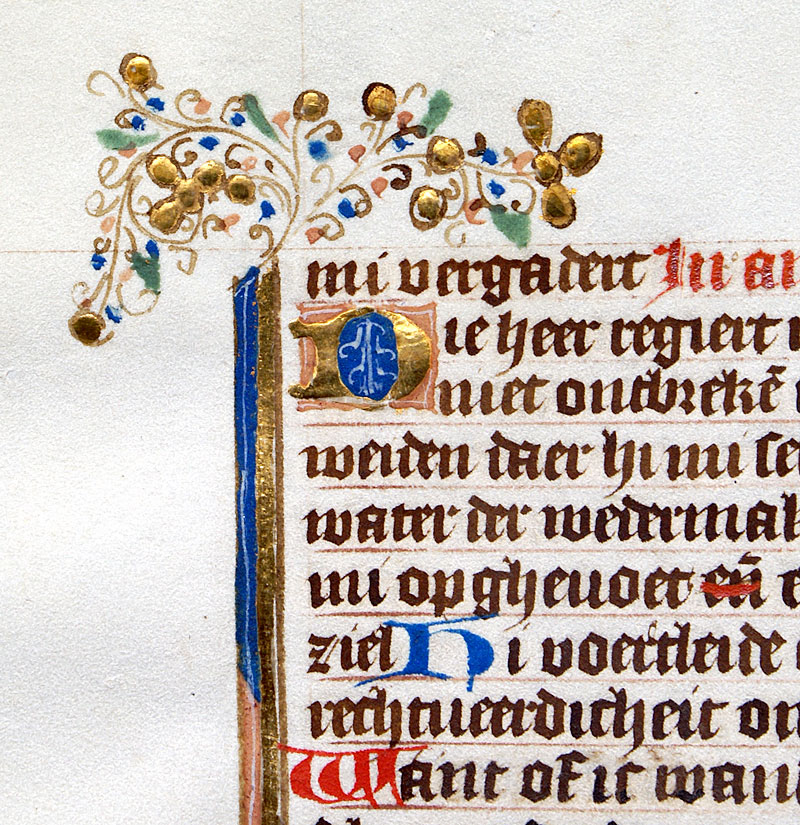 mi vergadert In an
Die heer regiert
niet ontbrekē
weiden daer hi mi
water der wedermak
mi op ghevoet en̄
ziel Hi voertleide
rechtueerdicheit on
Want of ic wan